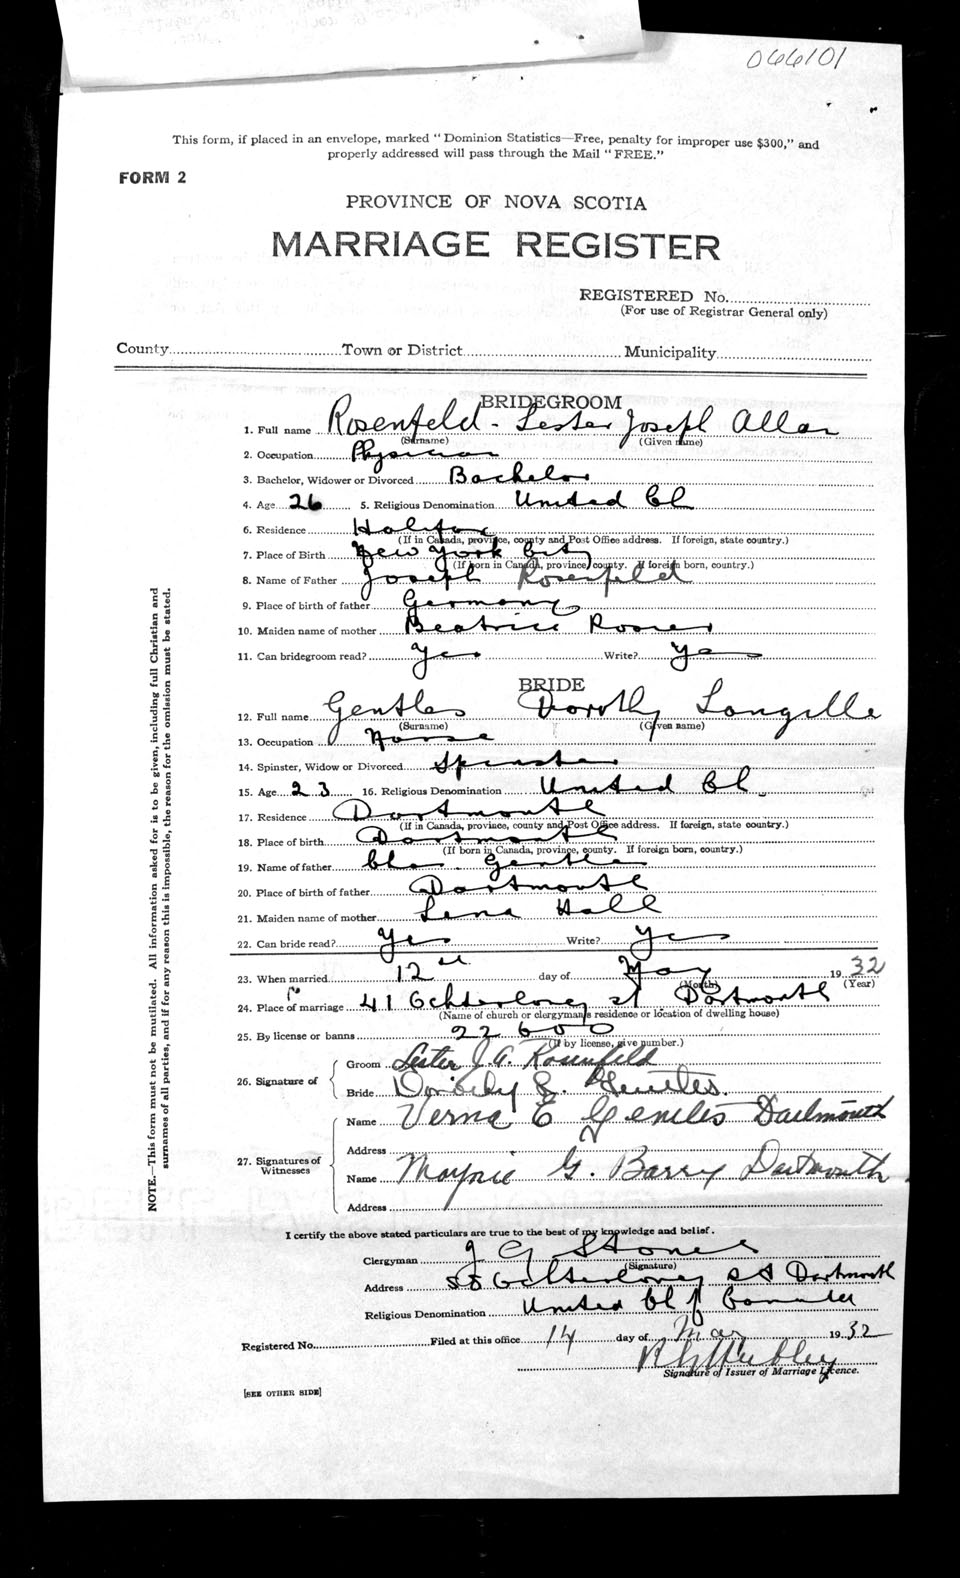 066101
This form, if placed in an envelope, marked "Dominion Statistics—Free, penalty for improper use $300," and
properly addressed will pass through the Mail "FREE."
FORM 2
PROVINCE OF NOVA SCOTIA
MARRIAGE REGISTER
REGISTERED No.
(For use of Registrar General only)
County Town or District Municipality
BRIDEGROOM
1. Full name Rosenfeld - Lester Joseph Allan
(Surname) (Given name)
2. Occupation Physician
3. Bachelor, Widower or Divorced Bachelor
4. Age 26 5. Religious Denomination United Ch
6. Residence Halifax
(If in Canada, province, county and Post Office address. If foreign, state country.)
7. Place of Birth New York City
(If born in Canada, province, county. If foreign born, country.)
8. Name of Father Joseph Rosenfeld
9. Place of birth of father Germany
10. Maiden name of mother Beatrice
11. Can bridegroom read? Yes Write? Yes
BRIDE
12. Full name Gentles Dorothy Longille
(Surname) (Given name)
13. Occupation Nurse
14. Spinster, Widow or Divorced Spinster
15. Age 23 16. Religious Denomination United Ch
17. Residence Dartmouth
(If in Canada, province, county and Post Office address. If foreign, state country.)
18. Place of birth Dartmouth
(If born in Canada, province, county. If foreign born, country.)
19. Name of father Chas. Gentles
20. Place of birth of father Dartmouth
21. Maiden name of mother Lena Hall
22. Can bride read? Yes Write? Yes
23. When married 12th day of May 1932
(Month) (Year)
24. Place of marriage 41 Ochterloney st Dartmouth
(Name of church or clergyman's residence or location of dwelling house)
25. By license or banns 22600
(If by license, give number.)
26. Signature of
Groom Lester J. A. Rosenfeld
Bride Dorothy L. Gentles.
27. Signatures of Witnesses
Name Verna E Gentles Dartmouth
Address
Name Marjorie G. Barry Dartmouth
Address
I certify the above stated particulars are true to the best of my knowledge and belief.
Clergyman J G Stones
(Signature)
Address Ochterloney st Dartmouth
Religious Denomination United Ch of Canada
Registered No. Filed at this office 14 day of May 1932
Signature of Issuer of Marriage Licence.
[SEE OTHER SIDE]
NOTE.—This form must not be mutilated. All information asked for is to be given, including full Christian and
surnames of all parties, and if for any reason this is impossible, the reason for the omission must be stated.